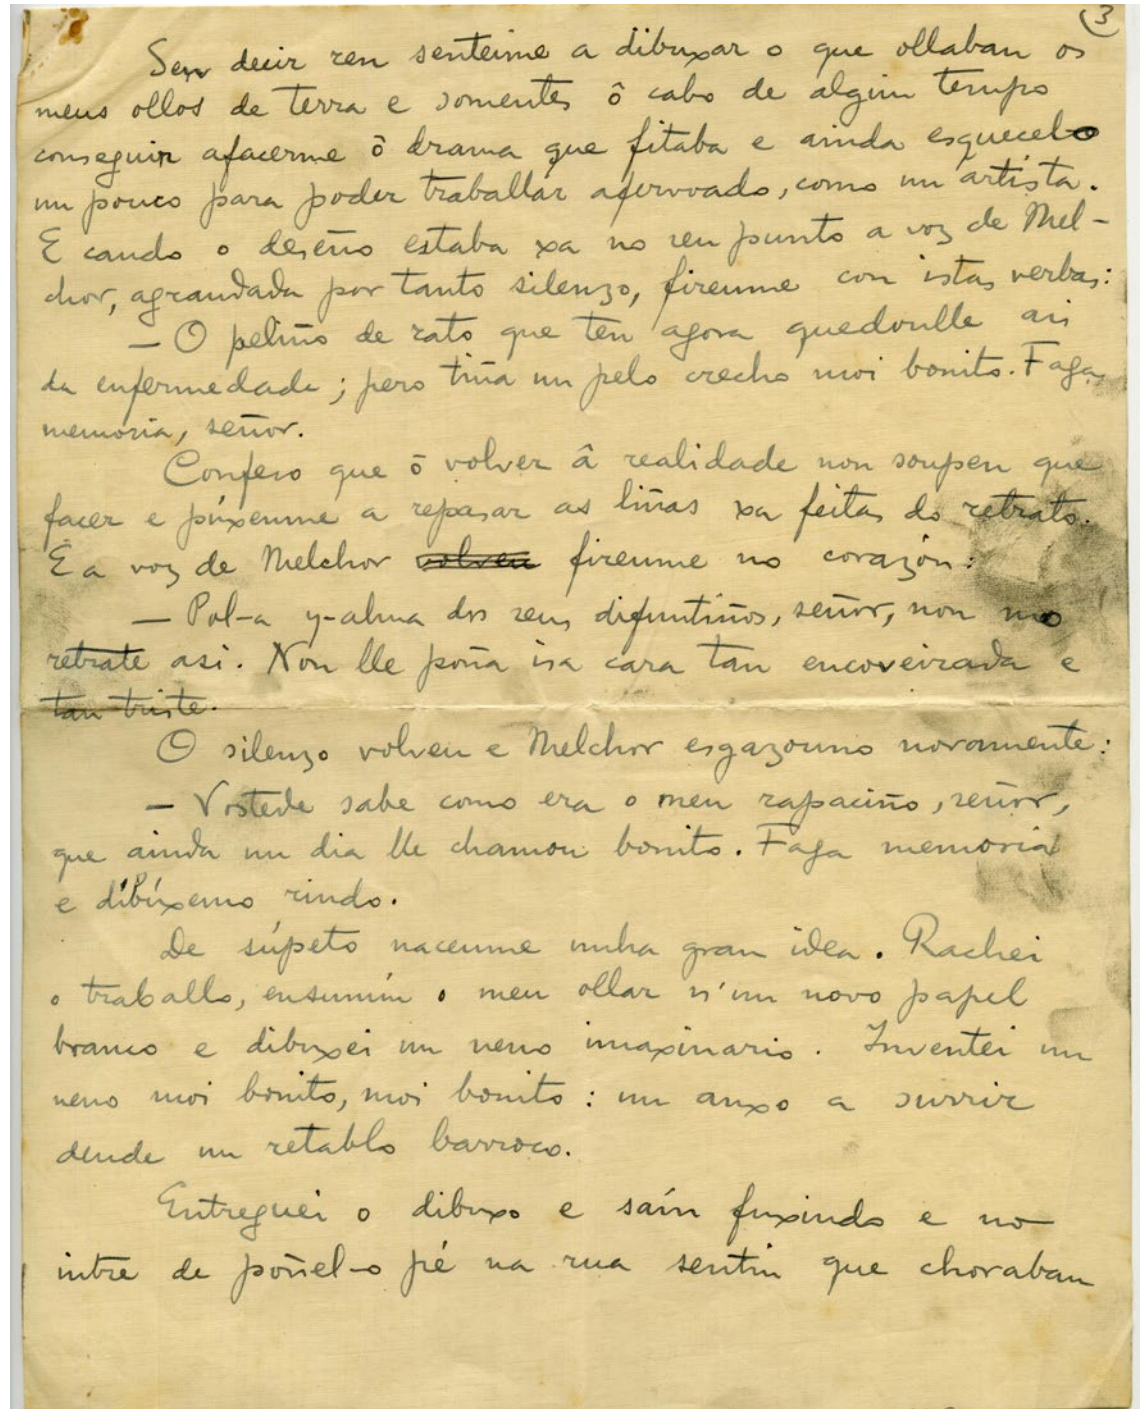 3
Sen decir ren senteime a dibuxar o que ollaban os
meus ollos de terra e somentes ô cabo de algún tempo
conseguin afacerme ô drama que fitaba e ainda esquecelo
un pouco para poder traballar afervoado, como un artista.
E cando o deseño estaba xa no seu punto a voz de Mel-
chor, agrandada por tanto silenzo, fireume con istas verbas:
— O peliño de rato que ten agora quedoulle asi
da enfermedade; pero tiña un pelo crecho moi bonito. Faga
memoria, señor.
Confeso que ô volver â realidade non soupen que
facer e púxenme a repasar as liñas xa feitas do retrato.
E a voz de Melchor volveu fireume no corazón:
— Pol-a y-alma dos seus difuntiños, señor, non mo
retrate asi. Non lle poña isa cara tan encoveirada e
tan triste.
O silenzo volveu e Melchor esgazouno novamente:
— Vostede sabe como era o meu rapaciño, señor,
que ainda un dia lle chamou bonito. Faga memoria
e dibúxemo rindo.
De súpeto naceume unha gran idea. Rachei
o traballo, ensumín o meu ollar n'un novo papel
branco e dibuxei un neno imaxinario. Inventei un
neno moi bonito, moi bonito: un anxo a surrir
dende un retablo barroco.
Entreguei o dibuxo e saín fuxindo e no
intre de poñel-o pé na rua sentin que choraban